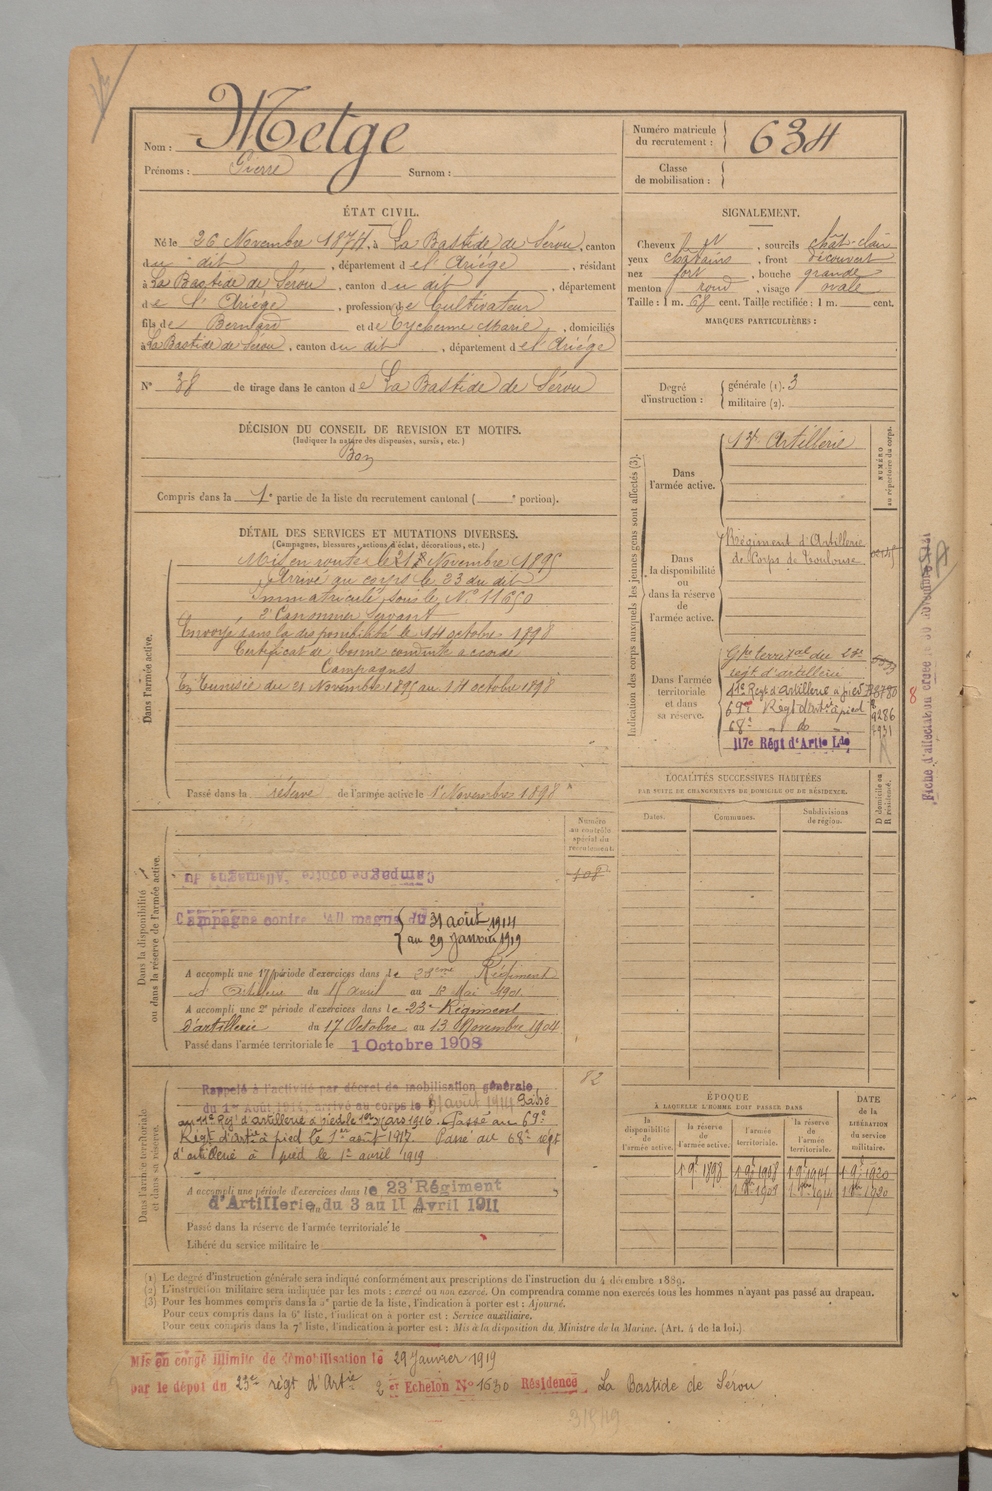 Metge
Nom :
Prénoms : Pierre Surnom :
Numéro matricule du recrutement : 634
Classe de mobilisation :
ÉTAT CIVIL.
Né le 26 Novembre 1874, à La Bastide de Sérou, canton
du dit, département de l'Ariège, résidant
à La Bastide de Sérou, canton du dit, département
de l'Ariège, profession de Cultivateur
fils de Bernard et de Eychenne Marie, domiciliés
à La Bastide de Sérou, canton du dit, département de l'Ariège
N° 38 de tirage dans le canton de La Bastide de Sérou
SIGNALEMENT.
Cheveux, sourcils chât-clair
yeux châtains, front découvert
nez fort, bouche grande
menton rond, visage ovale
Taille : 1 m. 68 cent. Taille rectifiée : 1 m. cent.
MARQUES PARTICULIÈRES :
Degré d'instruction : générale (1). 3
militaire (2).
DÉCISION DU CONSEIL DE REVISION ET MOTIFS.
(Indiquer la nature des dispenses, sursis, etc.)
Bon
Compris dans la 1e partie de la liste du recrutement cantonal ( e portion).
DÉTAIL DES SERVICES ET MUTATIONS DIVERSES.
(Campagnes, blessures, actions d'éclat, décorations, etc.)
Dans l'armée active.
Mis en route le 21 Novembre 1895
Arrivé au corps le 23 du dit
Immatriculé sous le N° 11650
2e Canonnier Servant
Envoyé dans la disponibilité le 14 octobre 1898
Certificat de bonne conduite accordé
Campagnes
En Tunisie du 21 Novembre 1895 au 14 octobre 1898
Passé dans la réserve de l'armée active le 1er Novembre 1898
Indication des corps auxquels les jeunes gens sont affectés (3).
NUMÉRO au répertoire du corps.
Dans l'armée active.
13e Artillerie
Dans la disponibilité ou dans la réserve de l'armée active.
Régiment d'Artillerie
de Corps de Toulouse
Dans l'armée territoriale et dans sa réserve.
Gpe territal du 23e
régt d'artillerie
11e Régt d'artillerie à pied
69e Régt d'Artie à pied
9286
68e " do "
7931
117e Régt d'Artie Lde
Fiche d'affectation
8
LOCALITÉS SUCCESSIVES HABITÉES
PAR SUITE DE CHANGEMENTS DE DOMICILE OU DE RÉSIDENCE.
Dates. Communes. Subdivisions de région. D domicile ou R résidence.
Dans la disponibilité ou dans la réserve de l'armée active.
Numéro au contrôle spécial du recrutement.
108
Campagne contre Allemagne du
Campagne contre Allemagne du 31 août 1914
au 29 janvier 1919
A accompli une 1re période d'exercices dans le 23eme Régiment
d'Artillerie du 15 avril au 12 Mai 1901
A accompli une 2e période d'exercices dans le 23e Régiment
d'artillerie du 17 Octobre au 13 Novembre 1904
Passé dans l'armée territoriale le 1 Octobre 1908
Dans l'armée territoriale et dans sa réserve.
82
Rappelé à l'activité par décret de mobilisation générale
du 1er Août 1914, arrivé au corps le 31 août 1914 Passé
au 11e Régt d'artillerie à pied le 1er Mars 1916. Passé au 69e
Régt d'Artie à pied le 1er août 1917. Passé au 68e régt
d'artillerie à pied le 1er avril 1919
A accompli une période d'exercices dans le 23 Régiment
d'Artillerie du 3 au 11 Avril 1911
Passé dans la réserve de l'armée territoriale le
Libéré du service militaire le
ÉPOQUE
À LAQUELLE L'HOMME DOIT PASSER DANS
DATE de la LIBÉRATION du service militaire.
la disponibilité de l'armée active. la réserve de l'armée active. l'armée territoriale. la réserve de l'armée territoriale.
1 9e 1898 1 9e 1908 1 9e 1914 1 9e 1920
(1) Le degré d'instruction générale sera indiqué conformément aux prescriptions de l'instruction du 4 décembre 1889.
(2) L'instruction militaire sera indiquée par les mots : exercé ou non exercé. On comprendra comme non exercés tous les hommes n'ayant pas passé au drapeau.
(3) Pour les hommes compris dans la 2e partie de la liste, l'indication à porter est : Ajourné.
Pour ceux compris dans la 6e liste, l'indication à porter est : Service auxiliaire.
Pour ceux compris dans la 7e liste, l'indication à porter est : Mis à la disposition du Ministre de la Marine. (Art. 4 de la loi.)
Mis en congé illimité de démobilisation le 29 Janvier 1919
par le dépôt du 23e régt d'Artie 2 er Echelon N° 1630 Résidence La Bastide de Sérou